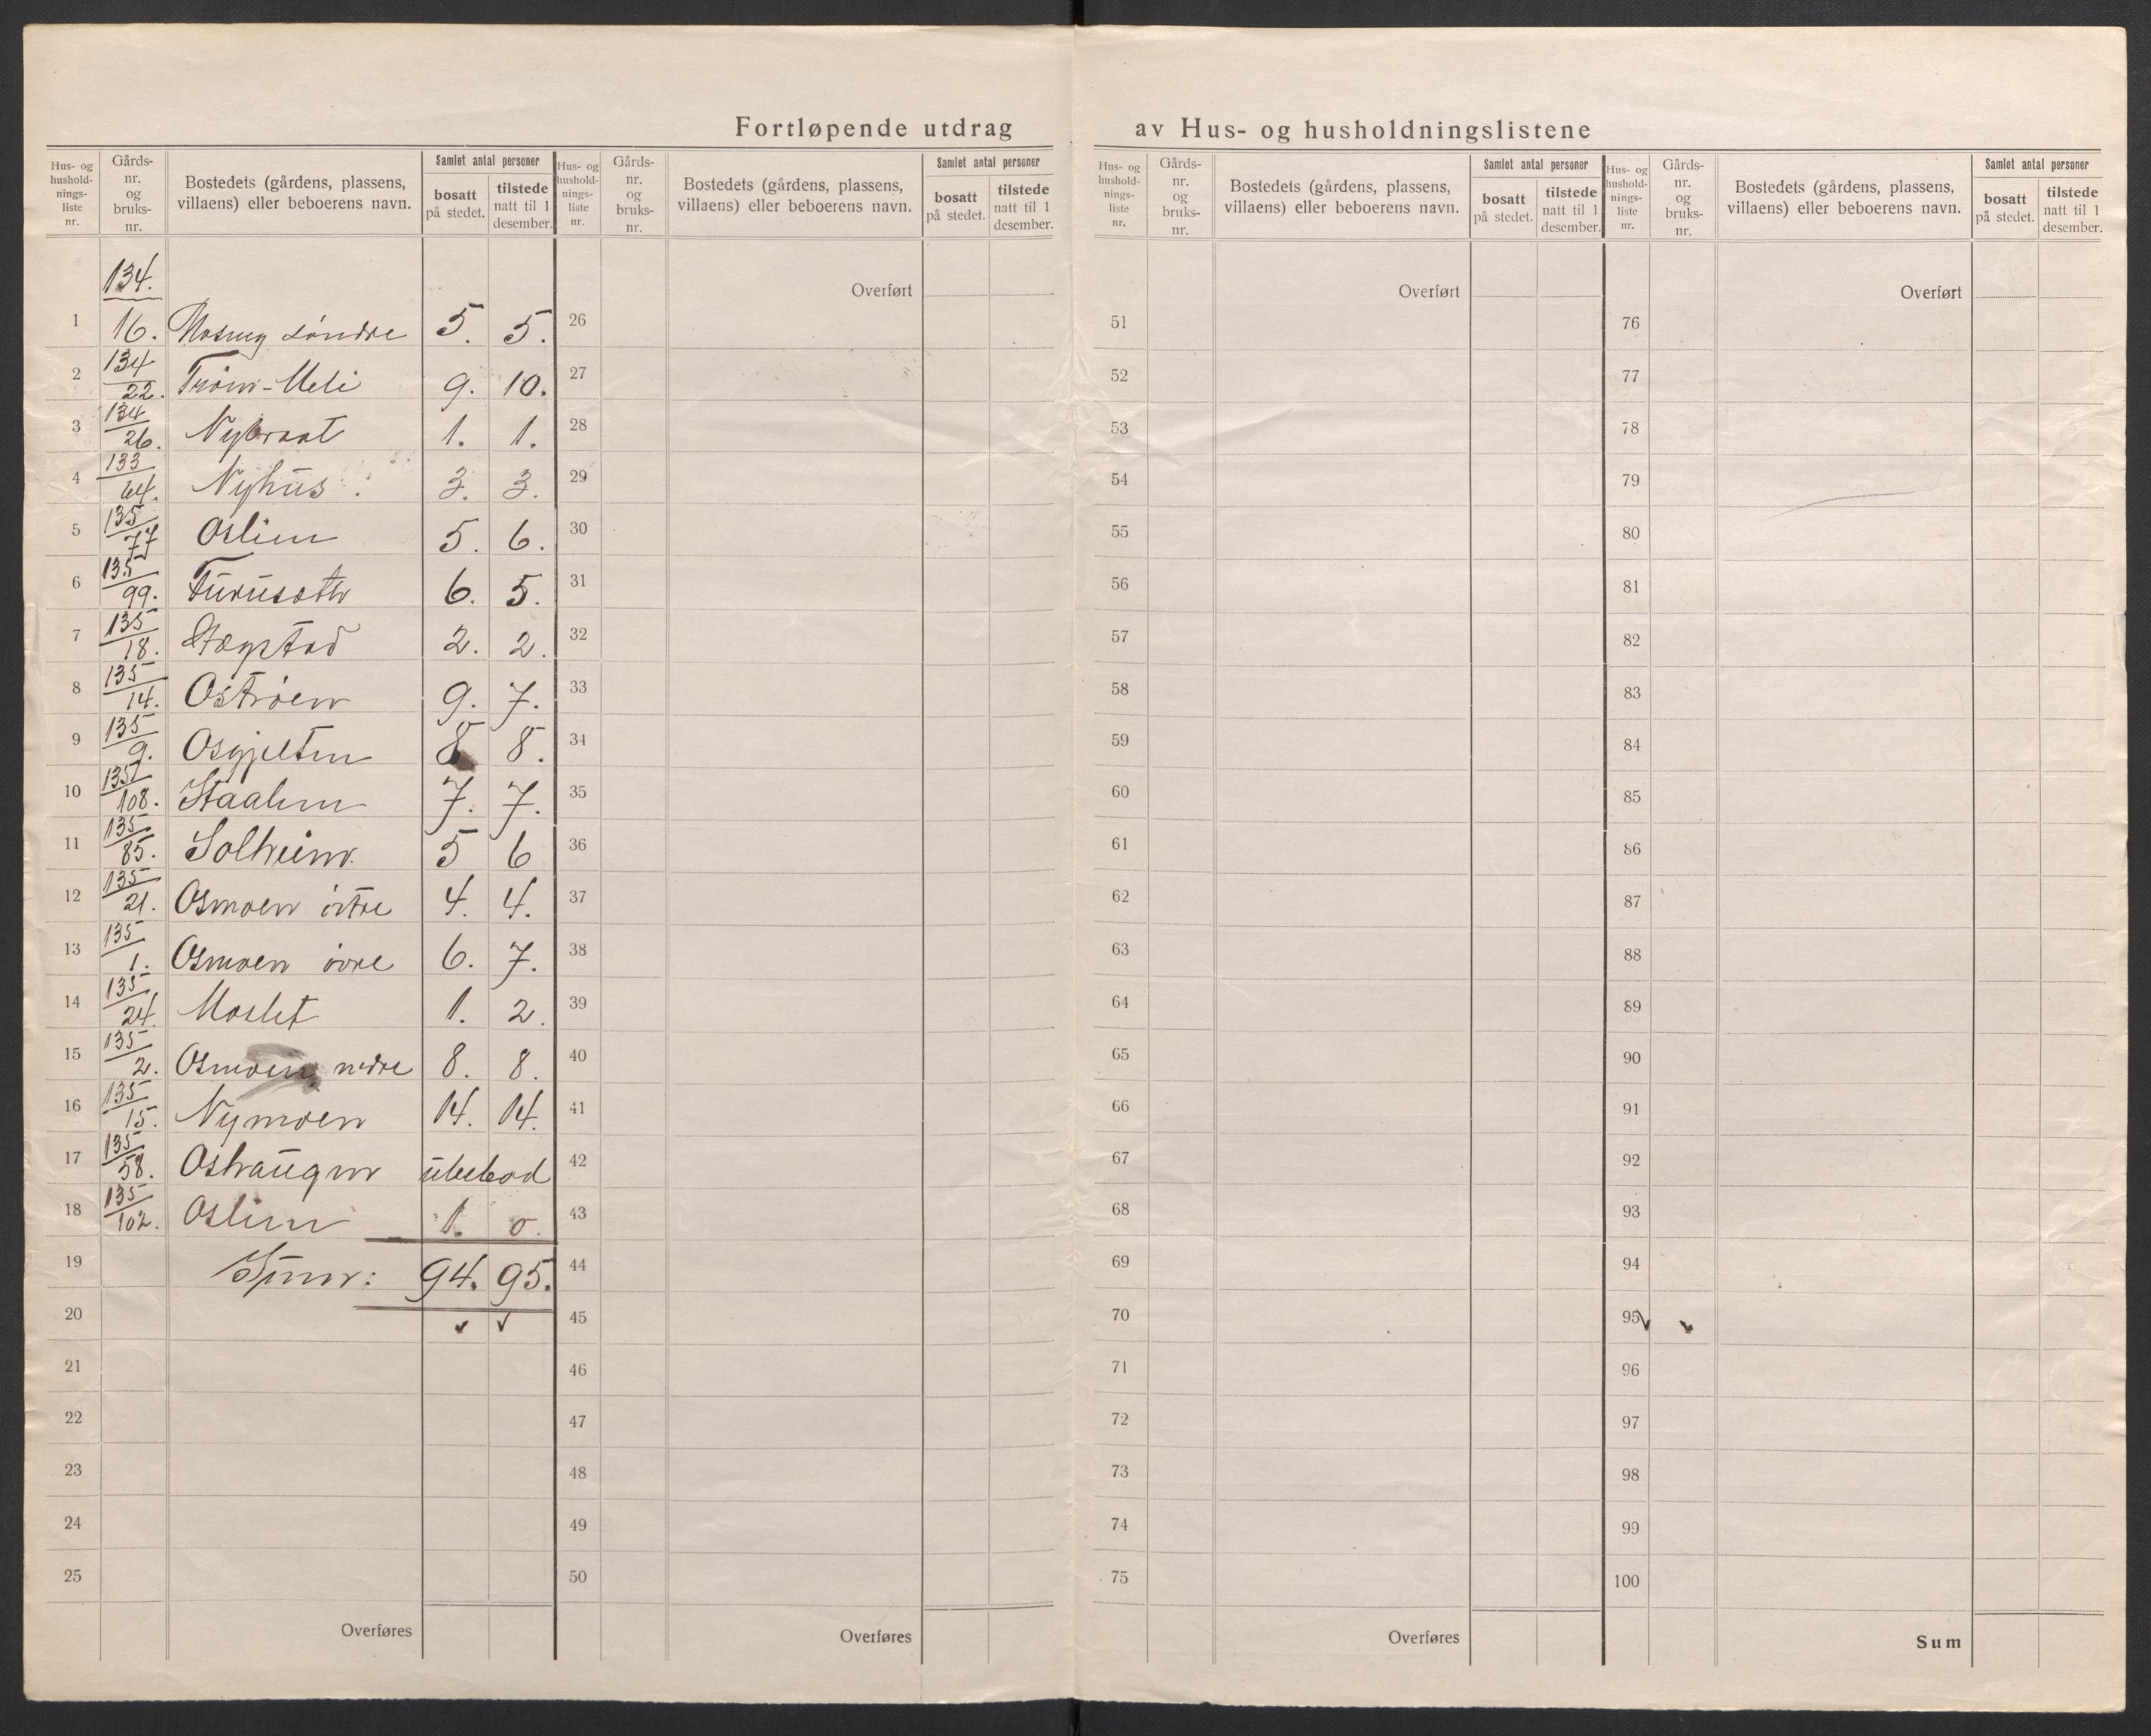 Fortløpende utdrag av Hus- og husholdningslistene
Hus- og husholdnings-liste nr. Gårds-nr. og bruks-nr. Bostedets (gårdens, plassens, villaens) eller beboerens navn. Samlet antal personer bosatt på stedet. tilstede natt til 1 desember.
Hus- og hushold-nings-liste nr. Gårds-nr. og bruks-nr. Bostedets (gårdens, plassens, villaens) eller beboerens navn. Samlet antal personer bosatt på stedet. tilstede natt til 1 desember.
Hus- og hushold-nings-liste nr. Gårds-nr. og bruks-nr. Bostedets (gårdens, plassens, villaens) eller beboerens navn. Samlet antal personer bosatt på stedet. tilstede natt til 1 desember.
Hus- og hushold-nings-liste nr. Gårds-nr. og bruks-nr. Bostedets (gårdens, plassens, villaens) eller beboerens navn. Samlet antal personer bosatt på stedet. tilstede natt til 1 desember.
134.
Overført Overført Overført
1 16. søndre 5. 5. 26 51 76
2 134/22. 9. 10. 27 52 77
3 134/26. Nybraat 1. 1. 28 53 78
4 133/64. Nyhus 3. 3. 29 54 79
5 135/77 Oslien 5. 6. 30 55 80
6 135/99. Furusæth 6. 5. 31 56 81
7 135/18. 2. 2. 32 57 82
8 135/14. Ostrøen 9. 7. 33 58 83
9 135/9. Osgjelten 8 8. 34 59 84
10 135/108. Staalien 7. 7. 35 60 85
11 135/85. Solheim. 5 6 36 61 86
12 135/21. Osmoen østre 4. 4. 37 62 87
13 135/1. Osmoen øvre 6. 7. 38 63 88
14 135/24. Moslet 1. 2. 39 64 89
15 135/2. Osmoen nedre 8. 8. 40 65 90
16 135/15. Nymoen 14. 14. 41 66 91
17 135/58. Oshaugen ubebod 42 67 92
18 135/102. Oslien 1. 0. 43 68 93
19 Sum: 94. 95. 44 69 94
20 45 70 95
21 46 71 96
22 47 72 97
23 48 73 98
24 49 74 99
25 50 75 100
Overføres Overføres Overføres Sum